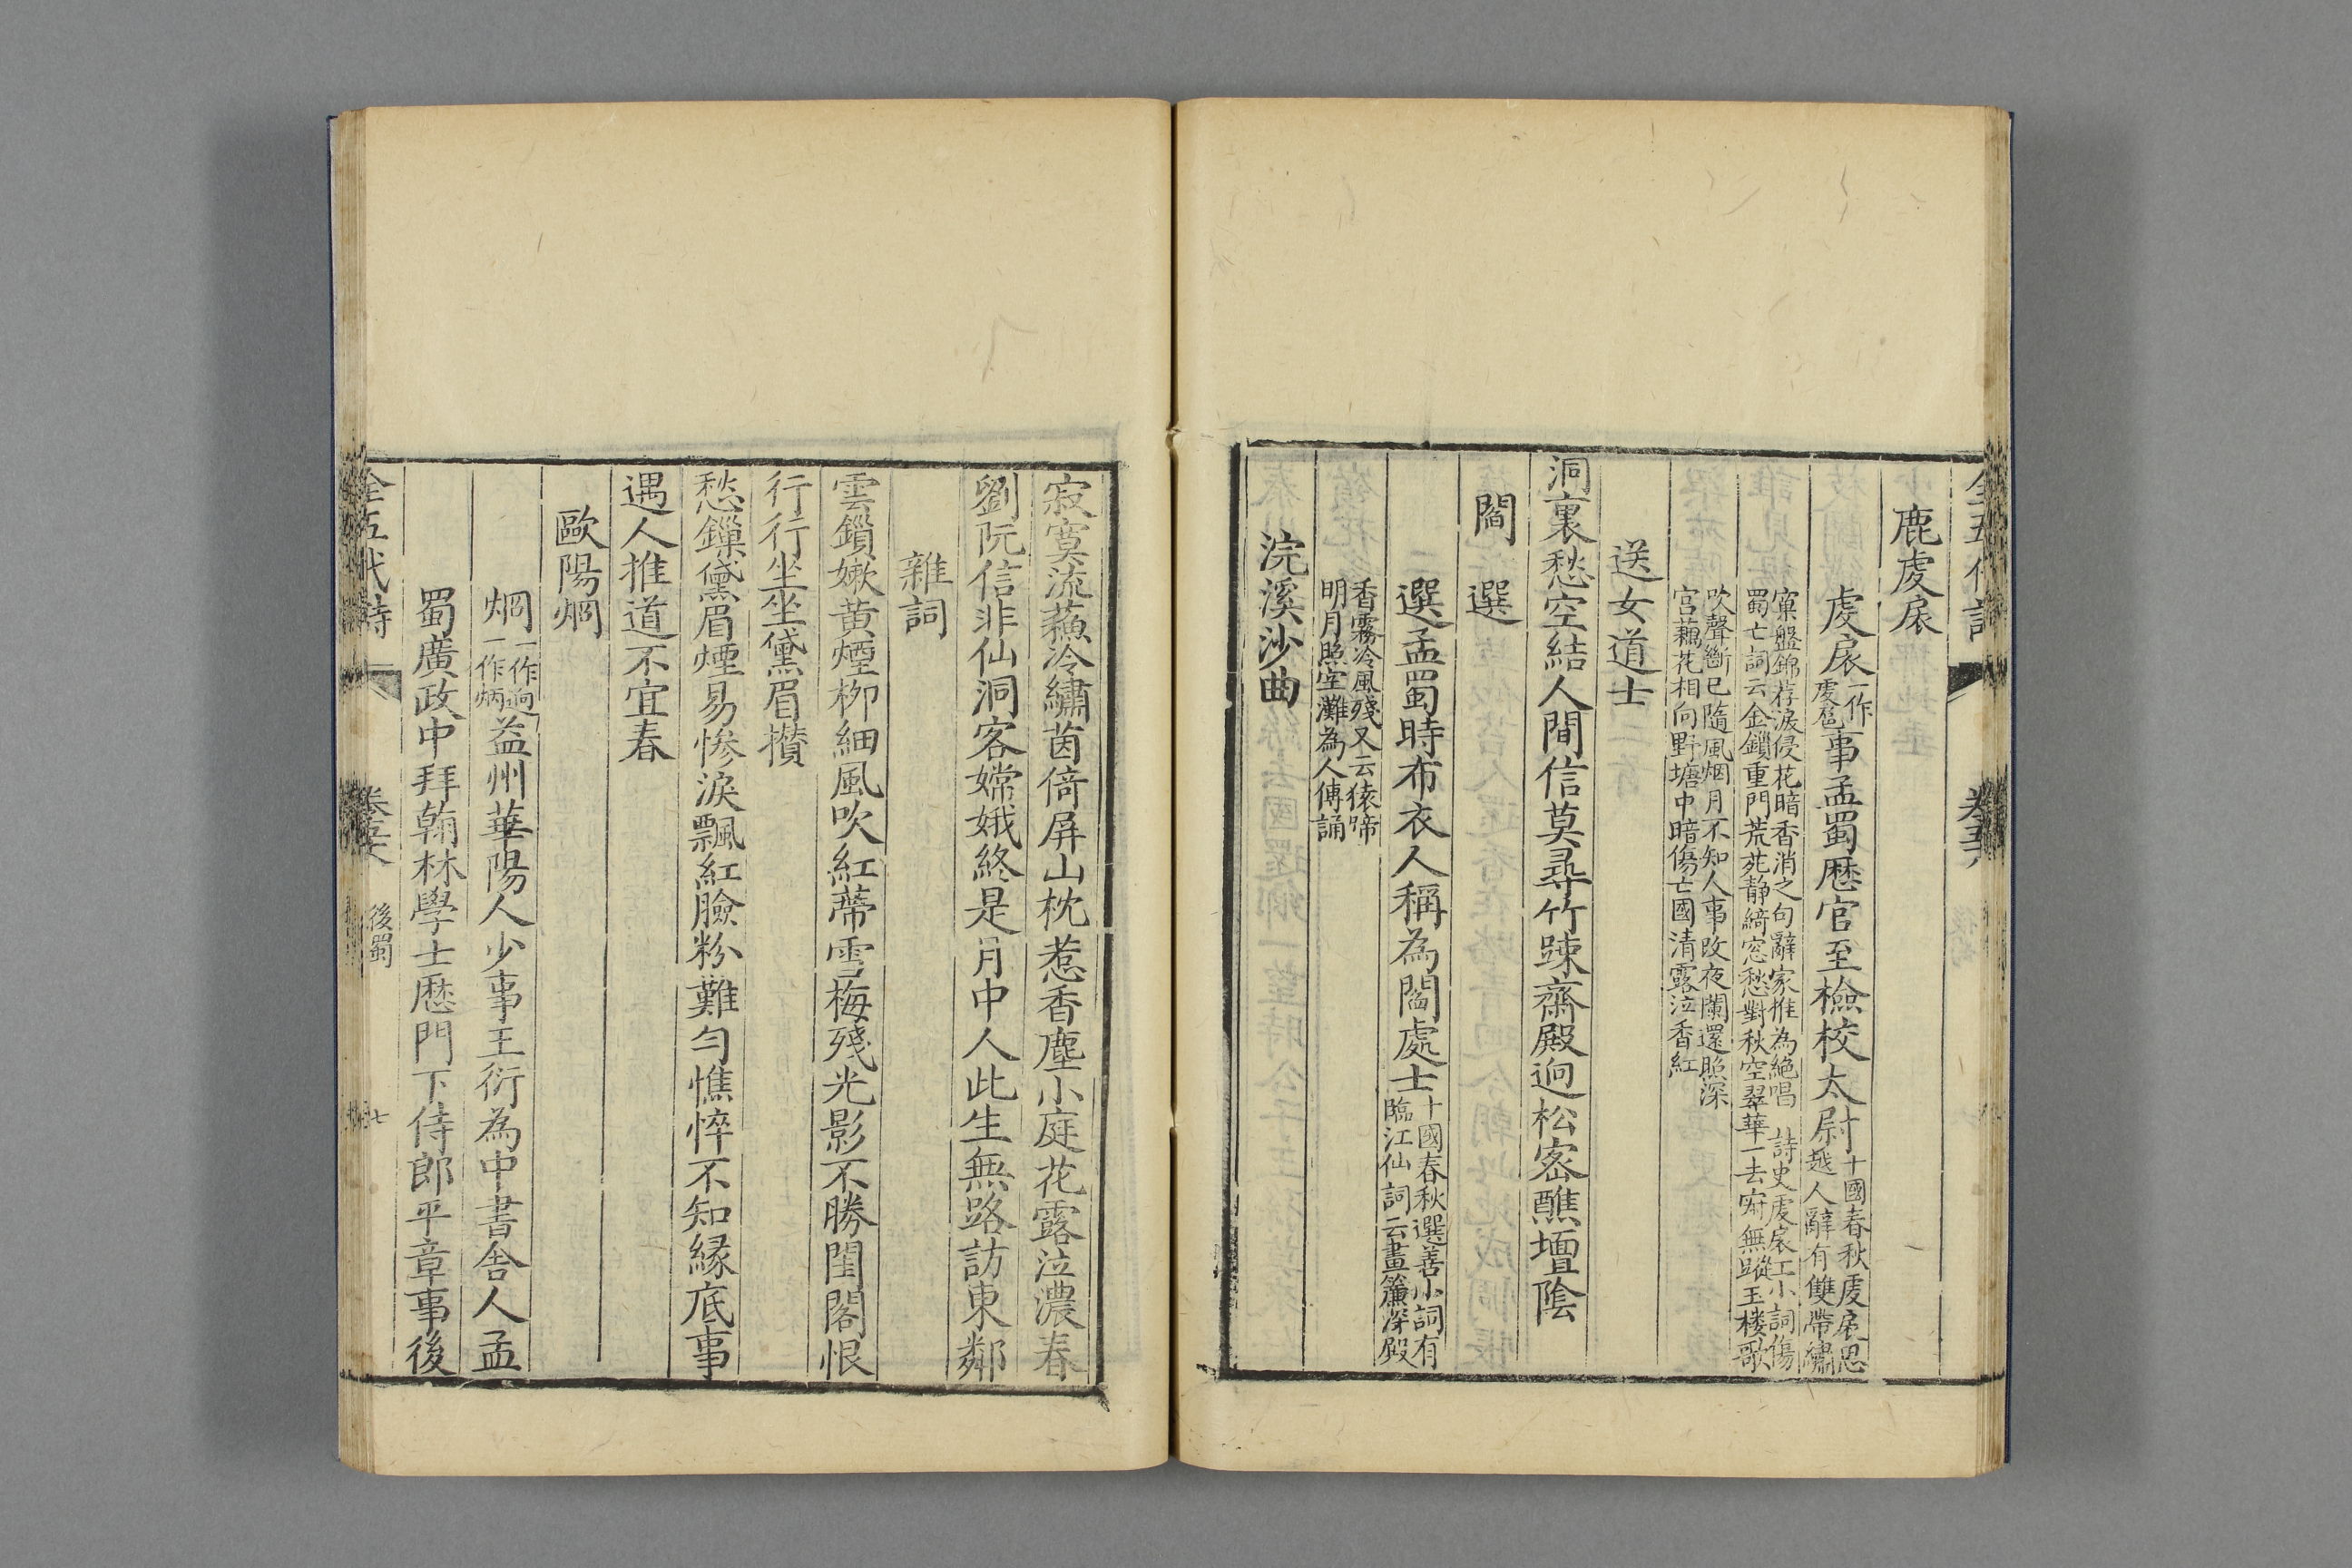 全五代詩
卷五六
鹿虔扆
虔扆一作虔扈事孟蜀歷官至檢校太尉十國春秋虔扆思越人辭有雙帶繡
窠盤錦荐淚侵花暗香消之句辭家推為絕唱 詩史虔扆工小詞傷
蜀亡詞云金鎖重門荒苑靜綺窓愁對秋空翠華一去寂無蹤玉樓歌
吹聲斷已隨風烟月不知人事改夜闌還照深
宮藕花相向野塘中暗傷亡國清露泣香紅
送女道士
洞裏愁空結人間信莫尋竹疎齋殿迥松密醮壇陰
閻選
選孟蜀時布衣人稱為閻處士十國春秋選善小詞有臨江仙詞云畫簾深殿
香霧冷風殘又云猿啼
明月照空灘為人傳誦
浣溪沙曲
寂寞流蘇冷繡茵倚屏山枕惹香塵小庭花露泣濃春
劉阮信非仙洞客嫦娥終是月中人此生無路訪東鄰
雜詞
雲鎖嫩黃煙柳細風吹紅蔕雪梅殘光影不勝閨閣恨
行行坐坐黛眉攢
愁鏁黛眉煙易慘淚飄紅臉粉難勻憔悴不知緣底事
遇人推道不宜春
歐陽烱
烱一作迥一作炳益州華陽人少事王衍為中書舍人孟
蜀廣政中拜翰林學士歷門下侍郎平章事後
全五代詩
卷五六
後蜀
七